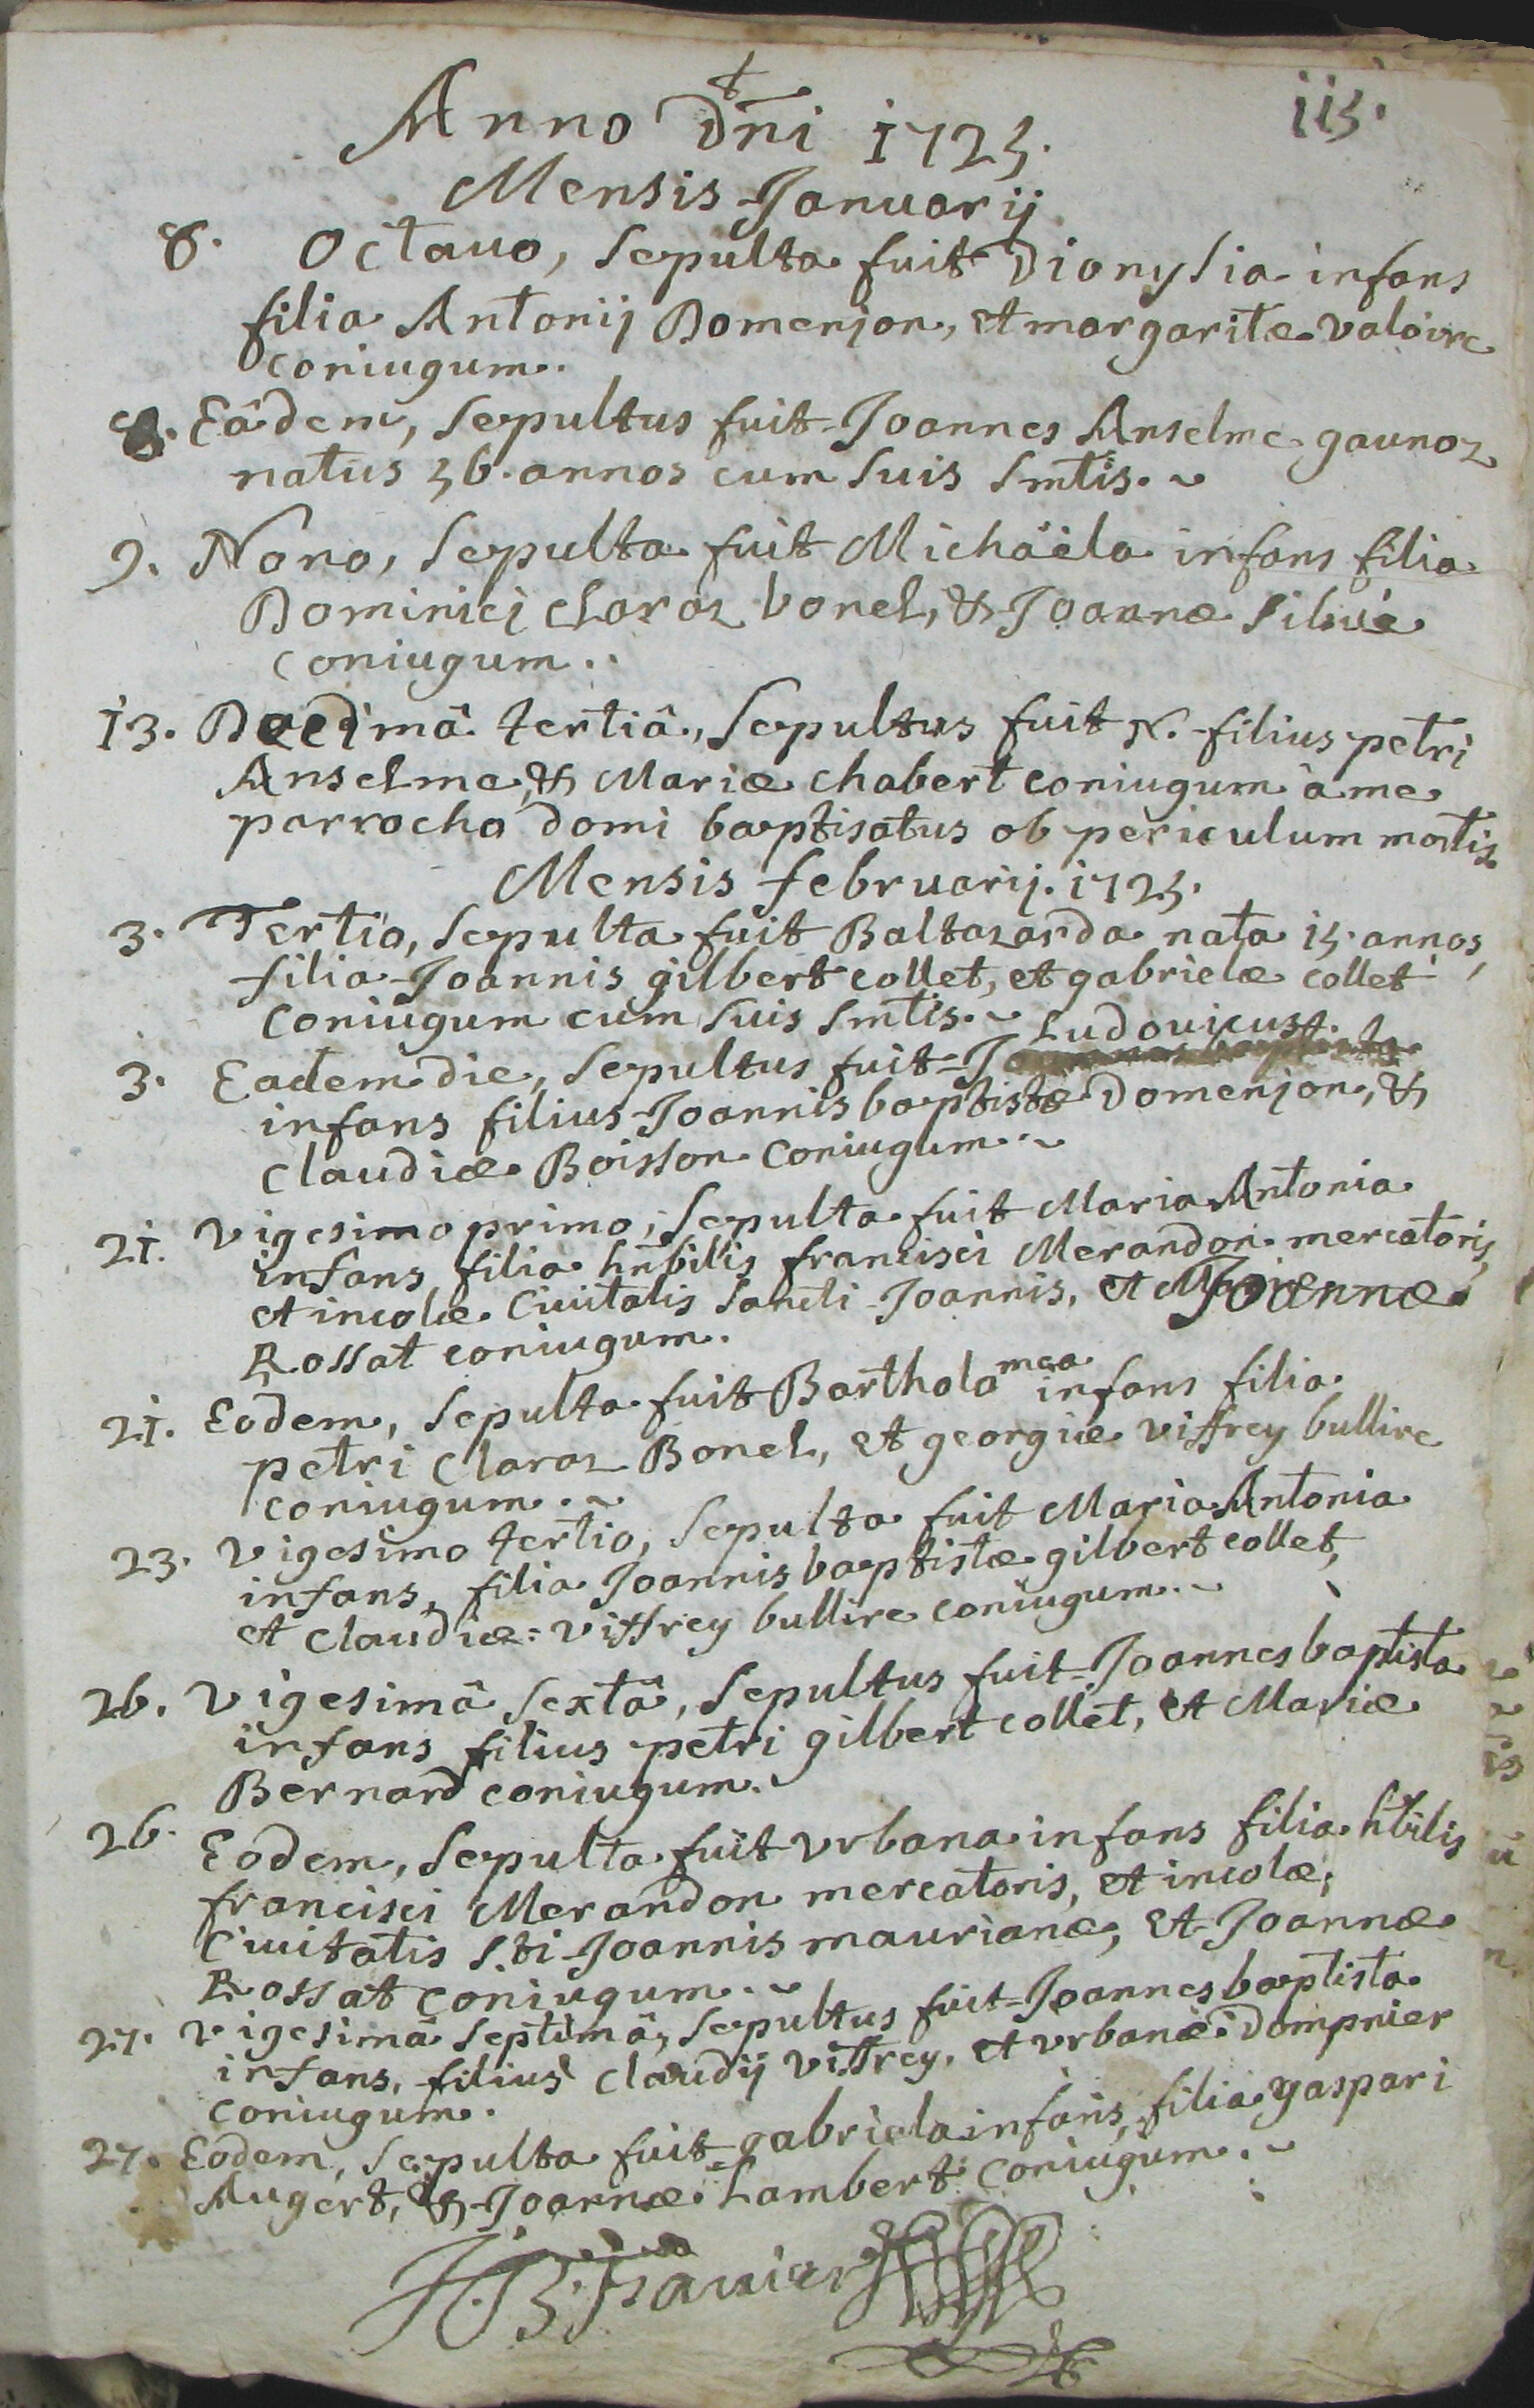 115.
Anno Dñi 1725.
Mensis Januarij
8. Octauo, Sepulta fuit Dionysia infans
filia Antonij Domenjon, et margaritæ valoire
coniugum.
8. Eâdem, Sepultus fuit Joannes Anselme gaunoz
natus 56. annos cum suis Smtis.
9. Nono, Sepulta fuit Michaëla infans filia
Dominici claraz bonel, & Joannæ Siluie
coniugum..
13. Decimâ tertiâ, Sepultus fuit N. filius petri
Anselme, & Mariæ chabert coniugum à me
parrocho domi baptisatus ob periculum mortis.
Mensis februarij. 1725.
3. Tertio, Sepulta fuit Baltazarda nata 15. annos,
filia Joannis gilbert collet, et gabrielæ collet
Coniugum cum suis Smtis.
Ludouicus.
3. Eadem die, Sepultus fuit
infans filius Joannis baptistæ Domenjon, &
Claudiæ Boisson Coniugum.
21. Vigesimo primo, Sepulta fuit Maria Antonia
infans filia hnbilis francisci Merandon mercatoris,
et incolæ Ciuitatis Sancti Joannis, et Joannæ
Rossat coniugum.
21. Eodem, Sepulta fuit Bartholomea infans filia
petri Claraz Bonel, et georgiæ viffrey bullire
coniugum.
23. Vigesimo tertio, Sepulta fuit Maria Antonia
infans, filia Joannis baptistæ gilbert collet,
et Claudiæ viffrey bullire coniugum.
26. Vigesimâ Sextâ, Sepultus fuit Joannes baptista
infans filius petri gilbert collet, et Mariæ
Bernard coniugum.
26. Eodem, Sepulta fuit vrbana infans filia hbilis
francisci Merandon mercatoris, et incolæ,
Ciuitatis S.ti Joannis maurianæ, et Joannæ
Rossat coniugum.
27. Vigesimâ Septimâ, Sepultus fuit Joannes baptista
infans, filius Claudij viffrey, et vrbanæ Dompnier
coniugum.
27. Eodem, Sepulta fuit gabriela infans, filia gaspari
Augert, & Joannæ Lambert coniugum.